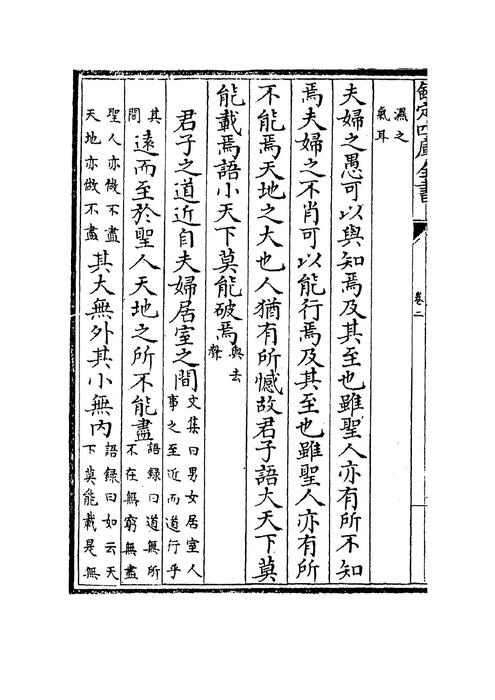 欽定四庫全書
卷二
濕之
氣耳
夫婦之愚可以與知焉及其至也雖聖人亦有所不知
焉夫婦之不肖可以能行焉及其至也雖聖人亦有所
不能焉天地之大也人猶有所憾故君子語大天下莫
能載焉語小天下莫能破焉
與去
聲
君子之道近自夫婦居室之間
文集曰男女居室人
事之至近而道行乎
其
間
遠而至於聖人天地之所不能盡
語録曰道無所
不在無窮無盡
聖人亦做不盡
天地亦做不盡
其大無外其小無内
語録曰如云天
下莫能載是無